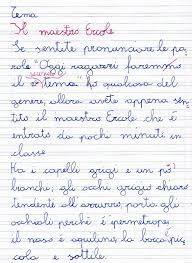 Tema
Il maestro Ercole
Se sentite pronunciare le pa
role "Oggi ragazzi faremmo
secondo
il tema" ho qualcosa del
genere, allora avete appena sen
tito il maestro Ercole che è
entrato da pochi minuti in
classe
Ha i capelli grigi e un pò
bianchi, gli occhi grigio chiaro
tendente all'azzurro, porta gli
occhiali perché è ipermetrope,
il naso è aquilino, la bocca pic
cola e sottile.